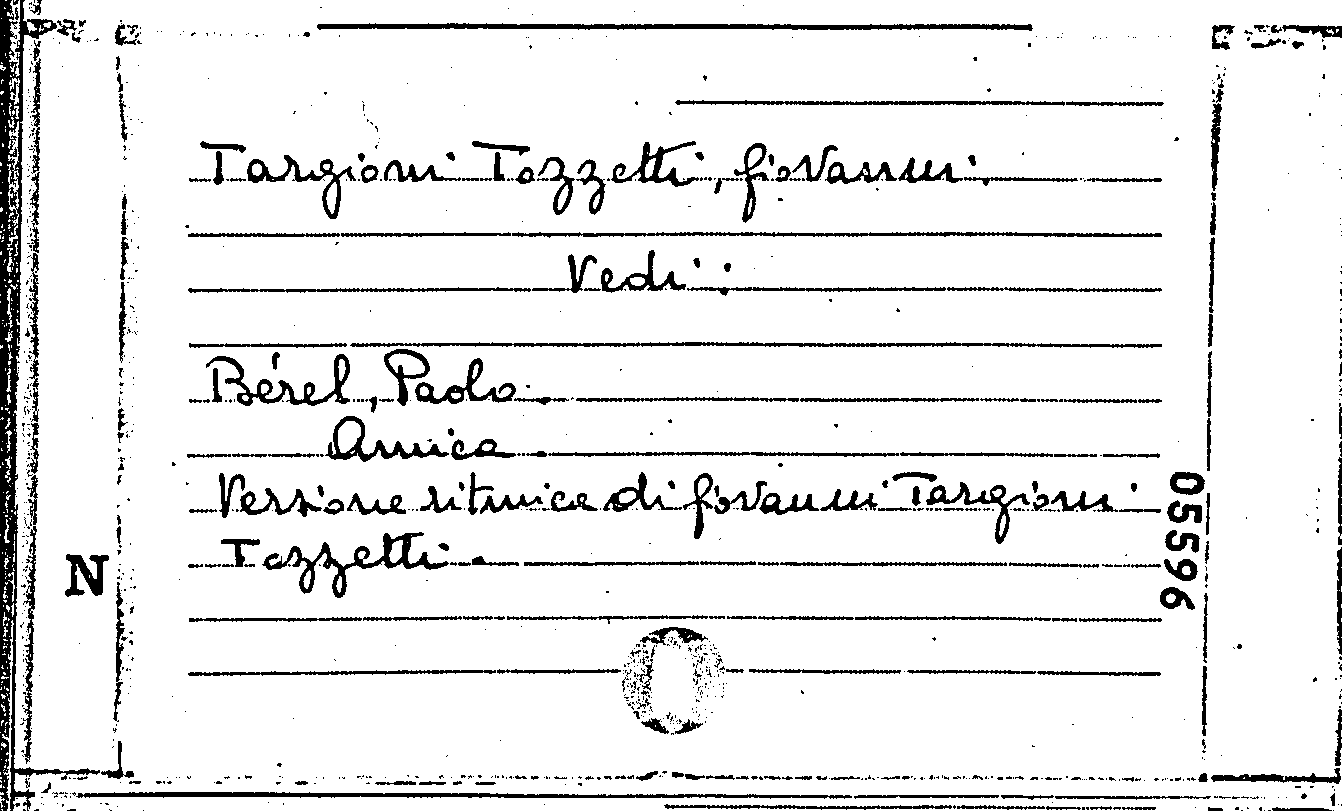 Targioni Tozzetti, Giovanni.
Vedi:
Bérel, Paolo.
Amica.
Versione ritmica di Giovanni Targioni
Tozzetti.
N
05596